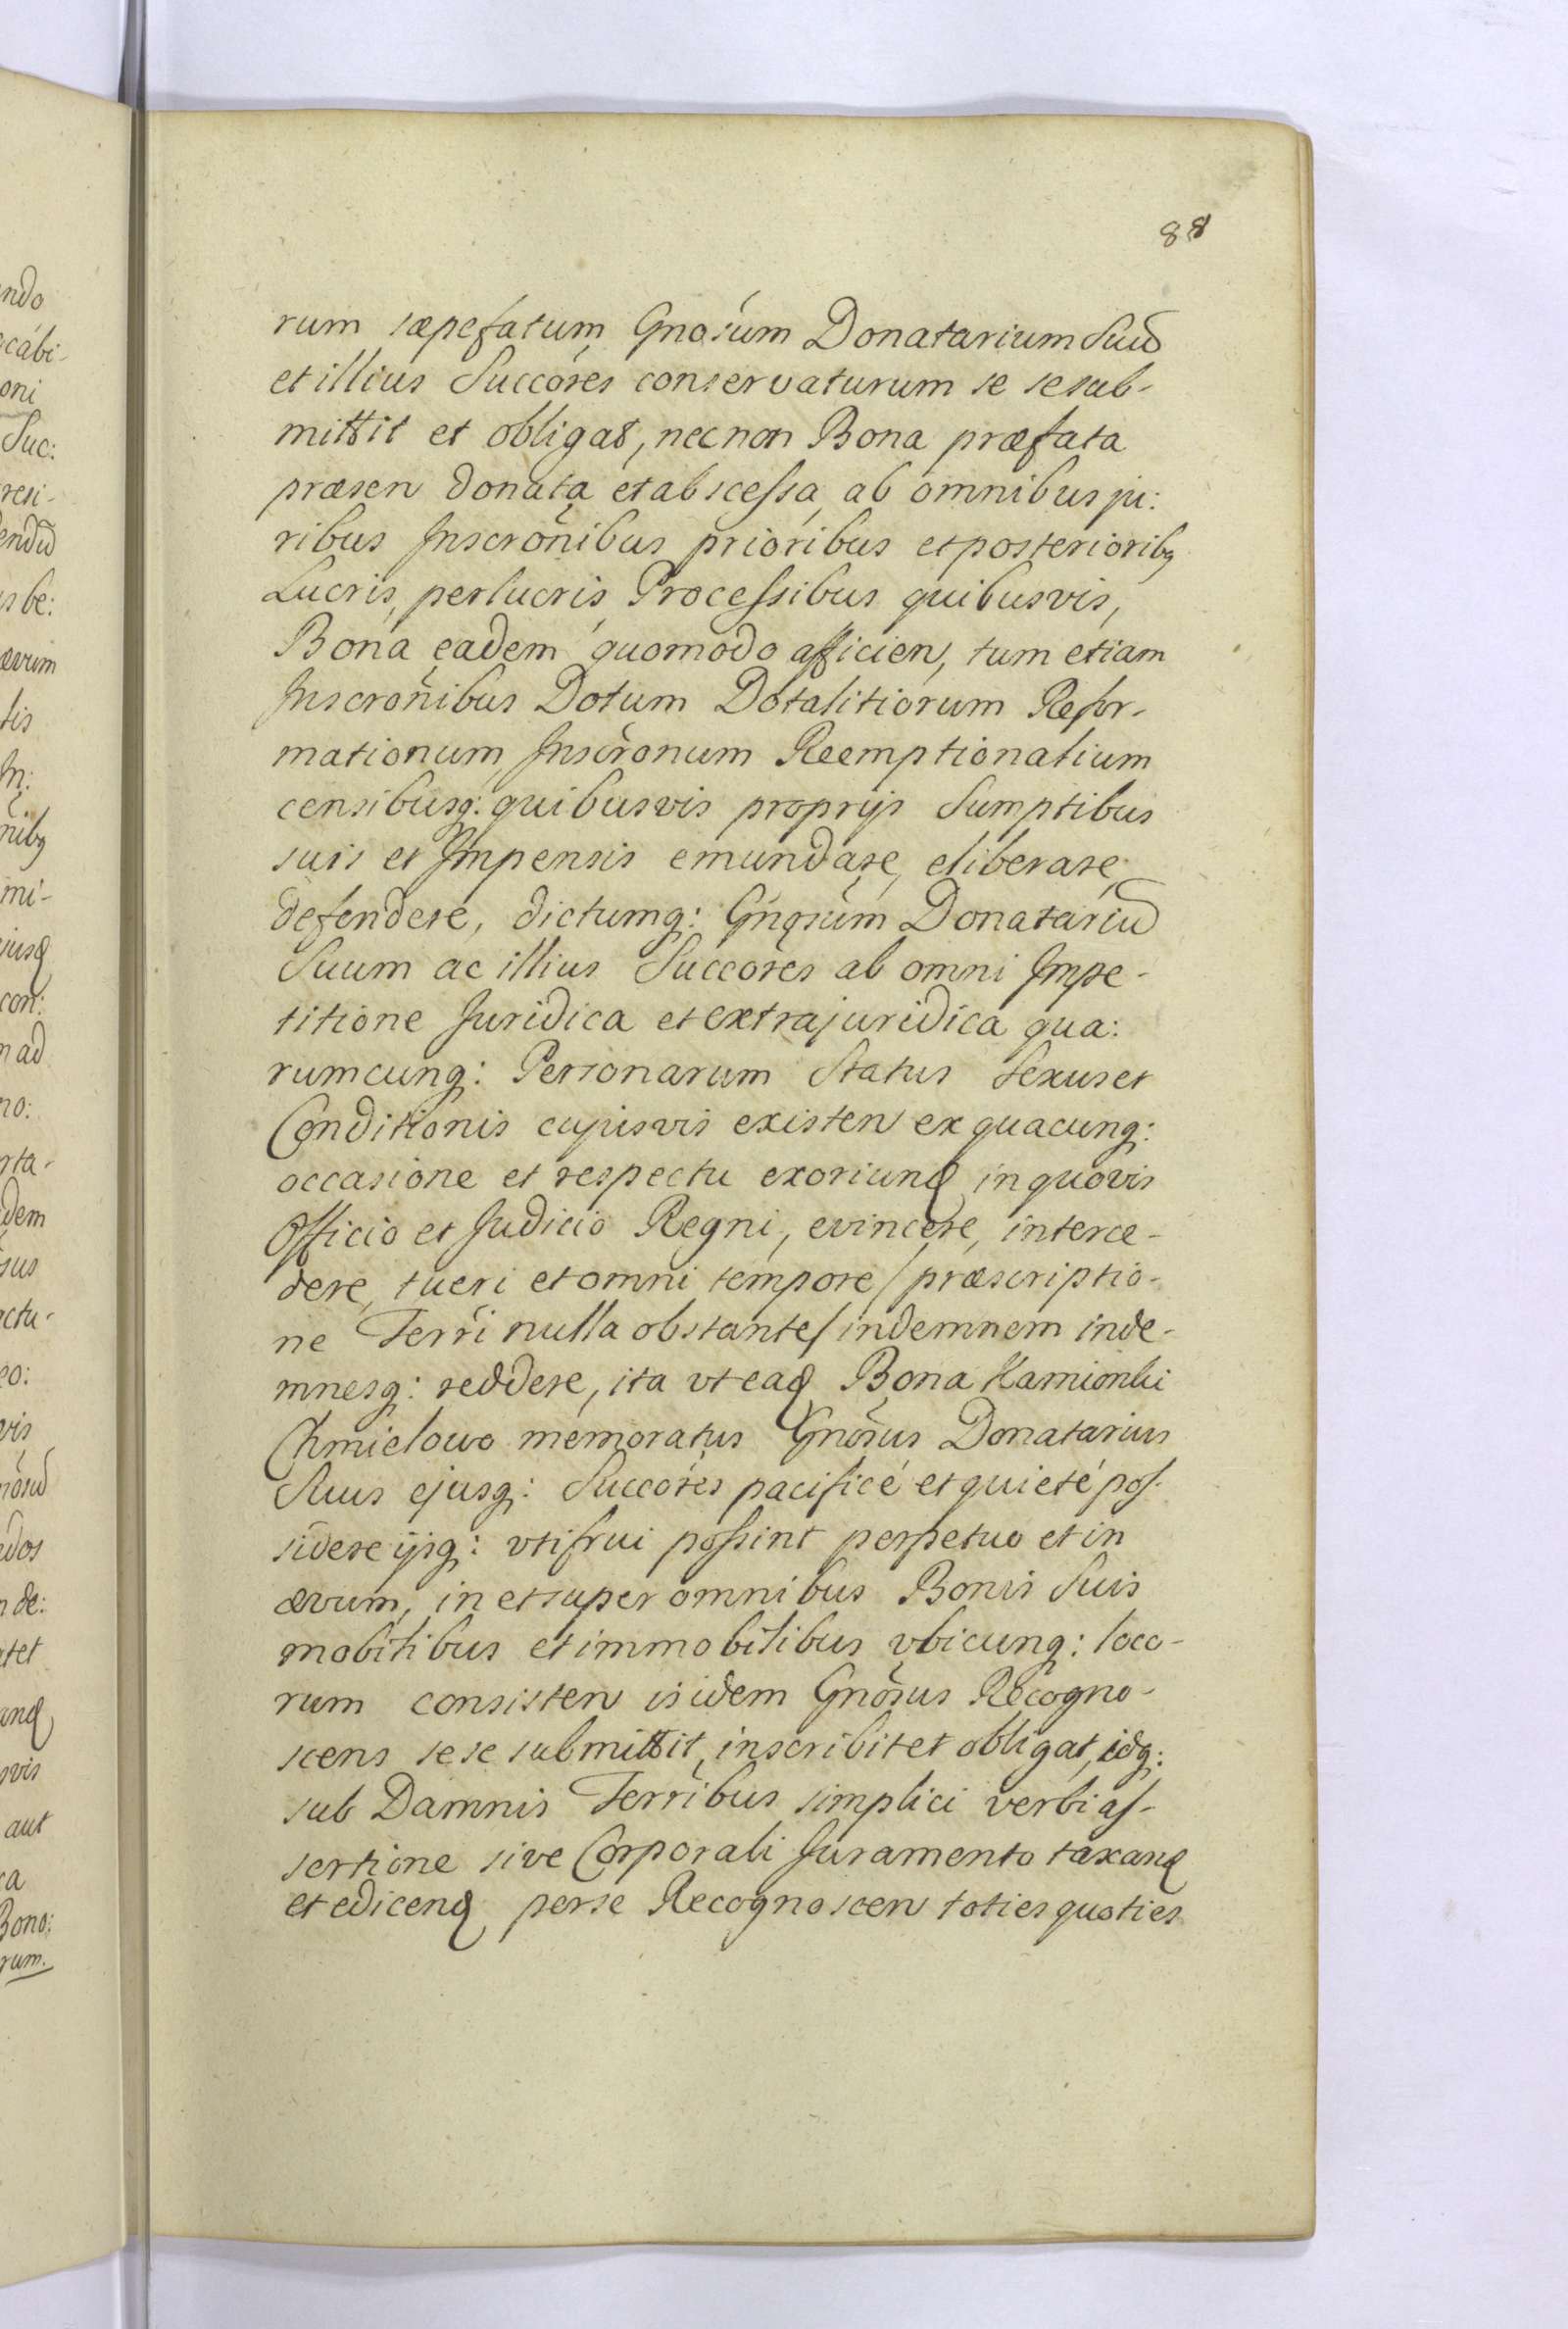 88
rum sæpefatum Gnosum Donatarium Suũ
et illius Succòres conservaturum se se sub-
mittit et obligat, necnon Bona præfata
præsen donata et abscessa ab omnibus ju:
ribus Inscrõnibus prioribus et posterioribq
Lucris, perlucris, Processibus quibusvis,
Bona eadem quomodo afficien, tum etiam
Inscrõnibus Dotum Dotalitiorum Refor-
mationum, Inscrõnum Reemptionalium
censibusq: quibusvis proprijs Sumptibus
suis et Impensis emundare, eliberare,
defendere, dictumq: Gnosũm Donatariũ
Suum ac illius Succòres ab omni Impe-
titione Juridica et extrajuridica qua:
rumcunq: Personarum Status Sexus et
Conditionis cujusvis existen ex quacunq:
occasione et respectu exoriund in quovis
Officio et Judicio Regni, evincere, interce-
dere, tueri et omni tempore / præscriptio-
ne Terrĩ nulla obstante / indemnem inde-
mnesq: reddere, ita vt ead Bona Kamionki
Chmielowo memoratus Gnõsus Donatarius
Suus ejusq: Succòres pacificé et quieté pos-
sidere ijsq: vtifrui possint perpetuo et in
ævum, in et super omnibus Bonis Suis
mobilibus et immobilibus vbicunq: loco-
rum consisten isidem Gnõsus Recogno-
scens sese submittit, inscribit et obligat, idq:
sub Damnis Terrĩbus simplici verbi as-
sertione sive Corporali Juramento taxand
et edicend per se Recognoscen toties quoties
ndo
ocábi-
oni
Suc:
resi-
endũ
s be:
ævum
tis
In:
nibq
mi-
jusd
con:
n ad
no:
rta-
dem
sus
ctu-
eo:
vis
nosũ
dos
n de:
tet
and
vis
aut
ca
Bono:
rum.